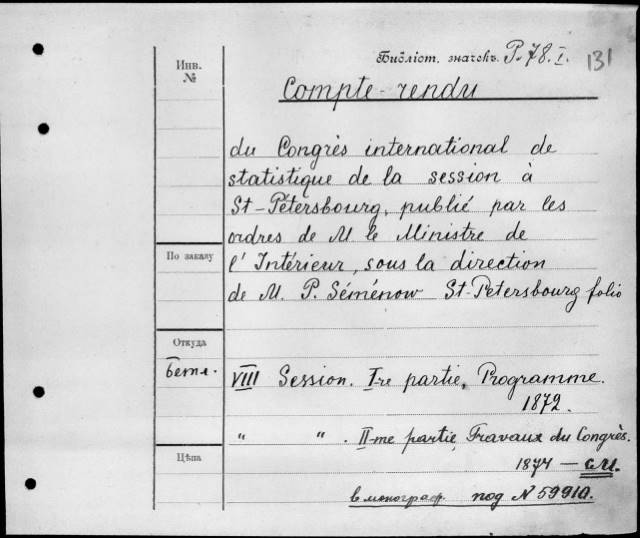 Библіот. значекъ P.78.I. 131
Инв.
№
Compte-rendu
du Congrès international de
statistique de la session à
St-Pétersbourg, publié par les
ordres de M. le Ministre de
По заказу
l'Intérieur, sous la direction
de M. P. Séménow St-Petersbourg folio
Откуда
VIII Session. I-re partie, Programme.
1872.
" ". II-me partie, Travaux du Congrès.
Цѣна
1874 — см.
в монограф. под N 59910.